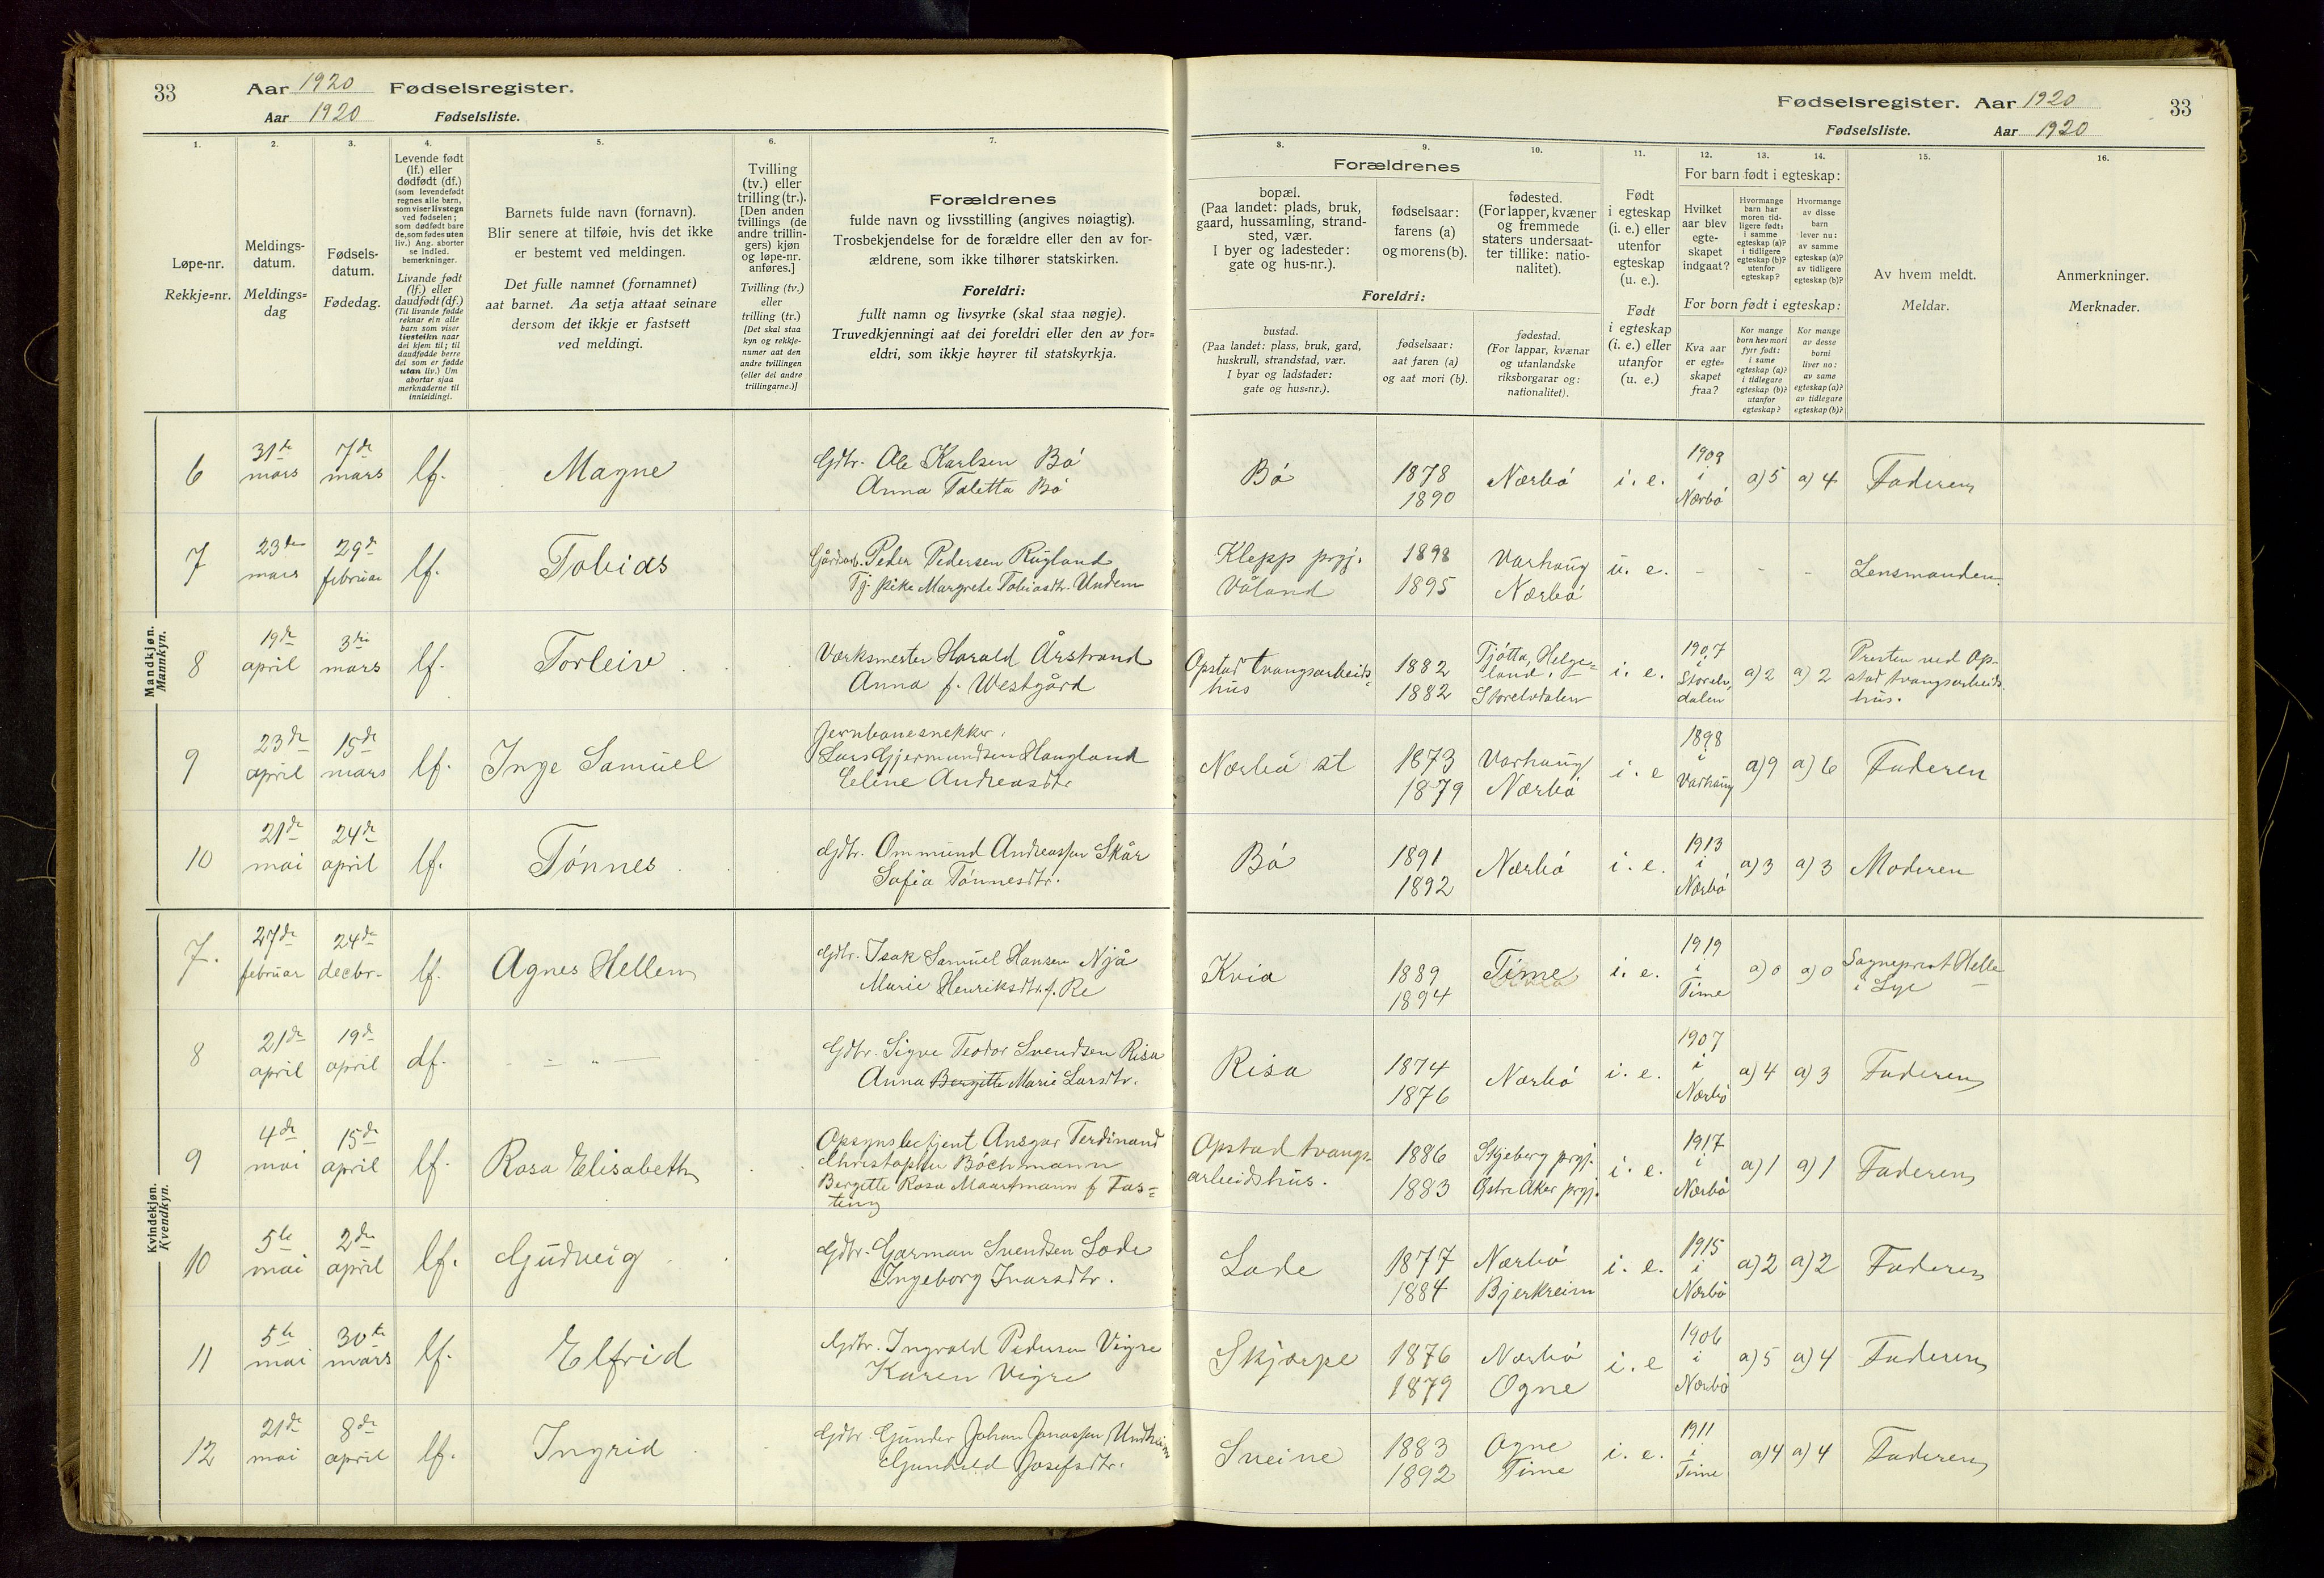 33
Aar 1920 Fødselsregister.
Aar 1920 Fødselsliste.
Fødselsregister. Aar 1920
33
Fødselsliste. Aar 1920
1.
2.
3.
4.
5.
6.
7.
8.
9.
10.
11.
12.
13.
14.
15.
16.
Løpe-nr.
Rekkje=nr.
Meldings-
datum.
Meldings=
dag
Fødsels-
datum.
Fødedag.
Levende født
(lf.) eller
dødfødt (df.)
(som levendefødt
regnes alle barn,
som viser livstegn
ved fødselen;
som dødfødt bare
de, som fødes uten
liv.) Ang. aborter
se indled.
bemerkninger.
Livande født
(lf.) eller
daudfødt (df.)
(Til livande fødde
reknar ein alle
barn som viser
livsteikn naar
dei kjem til; til
daudfødde berre
dei som er fødde
utan liv.) Um
abortar sjaa
merknaderne til
innleidingi.
Barnets fulde navn (fornavn).
Blir senere at tilføie, hvis det ikke
er bestemt ved meldingen.
Det fulle namnet (fornamnet)
aat barnet. Aa setja attaat seinare
dersom det ikkje er fastsett
ved meldingi.
Tvilling
(tv.) eller
trilling (tr.).
[Den anden
tvillings (de
andre trillin-
gers) kjøn
og løpe-nr.
anføres.]
Tvilling (tv.)
eller
trilling (tr.)
[Det skal staa
kyn og rekkje-
numer aat den
andre tvillingen
(eller dei andre
trillingarne.)]
Forældrenes
fulde navn og livsstilling (angives nøiagtig).
Trosbekjendelse for de forældre eller den av for-
ældrene, som ikke tilhører statskirken.
Foreldri:
fullt namn og livsyrke (skal staa nøgje).
Truvedkjenningi aat dei foreldri eller den av for=
eldri, som ikkje høyrer til statskyrkja.
Forældrenes
bopæl.
(Paa landet: plads, bruk,
gaard, hussamling, strand-
sted, vær.
I byer og ladesteder:
gate og hus-nr.).
fødselsaar:
farens (a)
og morens (b).
fødested.
(For lapper, kvæner
og fremmede
staters undersaat-
ter tillike: natio-
nalitet).
Foreldri:
bustad.
(Paa landet: plass, bruk, gard,
huskrull, strandstad, vær.
I byar og ladstader:
gate og hus=nr.).
fødselsaar:
aat faren (a)
og aat mori (b).
fødestad.
(For lappar, kvænar
og utanlandske
riksborgarar og:
nationalitet).
Født
i egteskap
(i. e.) eller
utenfor
egteskap
(u. e.).
Født
i egteskap
(i. e.) eller
utanfor
(u. e.)
For barn født i egteskap:
Hvilket
aar blev
egte-
skapet
indgaat?
Hvormange
barn har
moren tid-
ligere født:
i samme
egteskap (a)?
i tidligere
egteskap (b)?
utenfor
egteskap?
Hvormange
av disse
barn
lever nu:
av samme
egteskap (a)?
av tidligere
egteskap (b)?
For born født i egteskap:
Kva aar
er egte=
skapet
fraa?
Kor mange
born hev mori
fyrr født:
i same
egteskap (a)?
i tidlegare
egteskap (b)?
utanfor
egteskap?
Kor mange
av desse
borni
liver no:
av same
egteskap (a)?
av tidlegare
egteskap (b)?
Av hvem meldt.
Meldar.
Anmerkninger.
Merknader.
Mandkjøn.
Mannkyn.
6 31te mars 7de mars lf. Magne Gdbr. Ole Karlsen Bø
Anna Taletta Bø
Bø 1878 1890 Nærbø i. e. 1909 i Nærbø a) 5 a) 4 Faderen
7 23de mars 29de februar lf. Tobias Gårdarb. Peder Pedersen Rugland
Tj. pike Margrete Tobiasdtr. Undem
Klepp prgj. Våland 1898 1895 Varhaug Nærbø u. e. - - - Lensmanden
8 19de april 3die mars lf. Torleiv Værksmester Harald Årstrand
Anna f. Westgård
Opstad tvangsarbeids=
hus 1882 1882 Tjøtta, Helge=
land. Storelvdalen i. e. 1907 i Storelv,
dalen a) 2 a) 2 Presten ved Op-
stad tvangsarbeids
hus.
9 23de april 15de mars lf. Inge Samuel Jernbanesnekker.
Lars Gjermundsen Haugland
Eline Andreasdtr
Nærbø st 1873 1879 Varhaug Nærbø i. e 1898 i Varhaug a) 9 a) 6 Faderen
10 21de mai 24de april lf. Tønnes Gdbr. Ommund Andreassen Skår
Sofia Tønnesdtr.
Bø 1891 1892 Nærbø i. e. 1913 i Nærbø a) 3 a) 3 Moderen
Kvindekjøn.
Kvendkyn.
7. 27de februar 24de decbr. lf. Agnes Hellen Gdbr. Isak Samuel Hansen Njå
Marie Henriksdtr. f. Re
Kvia 1889 1894 Time i. e. 1919 i Time a) 0 a) 0 Sogneprest Helle
i Lye
8 21de april 19de april df. - = „ — Gdbr. Sigve Teodor Svendsen Risa
Anna Bergitte Marie Larsdtr.
Risa 1874 1876 Nærbø i. e. 1907 i Nærbø a) 4 a) 3 Faderen
9 4de mai 15de april lf. Rosa Elisabeth Opsynsbetjent Ansgar Ferdinand
Christopher Bóchmann
Bergette Rosa Maartmann f Fas=
ting
Opstad tvangs=
arbeidshus. 1886 1883 Skjeberg prgj. Østre Aker prgj. i. e. 1917 i Nærbø a) 1 a) 1 Faderen
10 5te mai 2den april lf. Gudveig Gdbr. Garman Svendsen Lode
Ingeborg Ivarsdtr.
Lode 1877 1884 Nærbø Bjerkreim i. e. 1915 i Nærbø a) 2 a) 2 Faderen
11 5te mai 30te mars lf. Elfrid Gdbr. Ingvald Pedersen Vigre
Karen Vigre
Skjærpe 1876 1879 Nærbø Ogne i. e 1906 i Nærbø a) 5 a) 4 Faderen
12 21de mai 8de april lf. Ingrid Gdbr. Gunder Johan Jonassen Undheim
Gunhild Josefsdtr.
Sveine 1883 1892 Ogne Time i. e. 1911 i Time a) 4 a) 4 Faderen